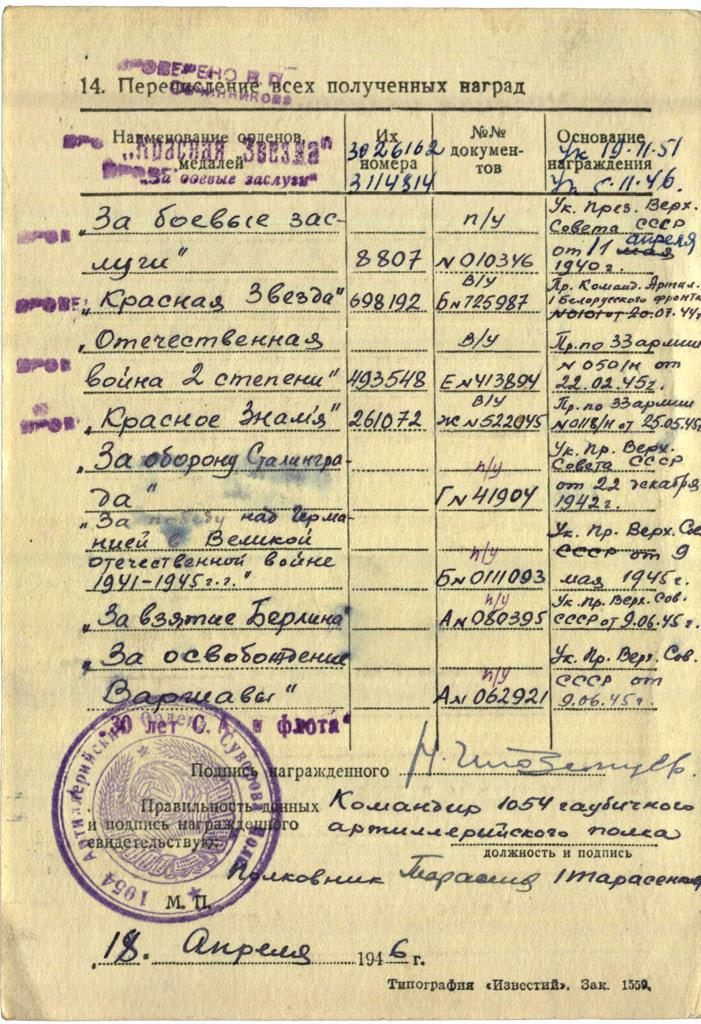 ПРОВЕРЕНО
14. Перечисление всех полученных наград
Наименование орденов, медалей
Их номера
№№ документов
Основание награждения
„Красная Звезда" 3026162 Ук 19.11.51
„За боевые заслуги" 3114814 Ук 5.11.46.
„За боевые зас- п/у Ук. През. Верх.
Совета СССР
луги" 8807 N010346 от 11 апреля
мая
1940г.
„Красная Звезда" 698192 в/у БN725987 Пр. Команд. Артил.
1 Белорусского фронта
N0101 от 20.07.44г
„Отечественная в/у Пр. по 33 армии
N 050/н от
война 2 степени" 493548 ЕN413894 22.02.45г.
„Красное Знамя" 261072 в/у ЖN522045 Пр. по 33 армии
N0118/н от 25.05.45г
„За оборону Сталингра- п/у Ук. Пр. Верх.
Совета СССР
да" ГN41904 от 22 декабря
1942г.
„За победу над Герма-
нией в Великой Ук. Пр. Верх. Сов
отечественной войне п/у СССР от 9
1941-1945г.г." БN0111093 мая 1945г.
„За взятие Берлина" п/у АN080395 Ук. Пр. Верх. Сов.
СССР от 9.06.45г.
„За освобождение Ук. Пр. Верх. Сов.
Варшавы" п/у АN062921 СССР от
9.06.45г.
"30 лет С.А. и флота"
Подпись награжденного
Правильность данных
и подпись награжденного
свидетельствую:
Командир 1054 гаубичного
артиллерийского полка
должность и подпись
Полковник /Тарасенко
М. П.
1054 Артиллерийский Ордена Суворова Полк
18. Апреля 1946 г.
Типография «Известий». Зак. 1559.